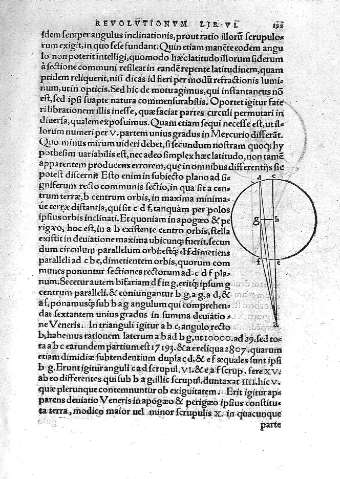 REVOLVTIONVM LIB. VI.
idem semper angulus inclinationis, prout ratio illorū scrupulo
rum exigit, in quo sese fundant. Quin etiam manēte eodem angu
lo non poterit intelligi, quomodo hæc latitudo illorum siderum
à sectione communi resileat in eandē repente latitudinem, quam
pridem reliquerit, nisi dicas id fieri per modū refractionis lumi
num, ut in opticis. Sed hic de motu agimus, qui instantaneus nō
est, sed ipsi suapte natura commensurabilis. Oportet igitur fate
ri librationem illis inesse, quæ faciat partes circuli permutari in
diuersa, qualem exposuimus. Quam etiam sequi necesse est, ut il-
lorum numeri per v. partem unius gradus in Mercurio differāt.
Quo minus mirum uideri debet, si secundum nostram quoq; hy
pothesim uariabilis est, nec adeo simplex hæc latitudo, non tamē
apparentem producens errorem, quæ in omnibus differentijs sic
potest discerni. Esto enim in subiecto plano ad si
gniferum recto communis sectio, in qua sit a cen-
trum terræ. b centrum orbis, in maxima minimá-
ue terræ distantis, qui sit c d f, tanquàm per polos
ipsius orbis inclinati. Et quoniam in apogæo &
perigæo, hoc est, in a b existente centro orbis, stella
existit in deuiatione maxima ubicunq; fuerit, secun
dum circulum parallelum orbi: estq; d f dimetiens
paralleli ad c b e, dimetientem orbis, quorum com
munes ponuntur sectiones rectorum ad c d f pla-
num. Secetur autem bifariam d f in g, eritq; ipsum g
centrum paralleli, & coniungantur b g, a g, a d, &
a f, ponamusq; sub b a g angulum qui comprehen-
dat sextantem unius gradus in summa deuiatio-
ne Veneris. In triangulo igitur a b c, angulo recto
b, habemus rationem laterum a b ad b g, ut 10000. ad 29. sed to-
ta a b c earundem partium est 17193. & a e reliqua 2807. quarum
etiam dimidiæ subtendentium dupla c d, & e f æquales sunt ipsi
b g. Erunt igitur anguli c a d scrupul. VI. & e a f scrup. fere XV.
ab eo differentes qui sub b a g, illic scrupul. duntaxat IIII. hic v.
quæ plerunque contemnuntur ob exiguitatem. Erit igitur ap-
parens deuiatio Veneris in apogæo & perigæo ipsius constitu-
ta terra, modico maior uel minor scrupulis x. in quacunque
parte
d
c
g
b
f
e
a